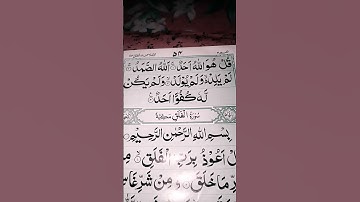 ۵۴
قُلْ هُوَ اللّٰهُ اَحَدٌ ۚ اَللّٰهُ الصَّمَدُ ۚ
لَمْ يَلِدْ ۙ وَلَمْ يُوْلَدْ ۙ وَلَمْ يَكُنْ
لَّهٗ كُفُوًا اَحَدٌ
سُوْرَةُ الْفَلَقِ مَكِّيَّةٌ
بِسْمِ اللّٰهِ الرَّحْمٰنِ الرَّحِيْمِ
اَعُوْذُ بِرَبِّ الْفَلَقِ
مَا خَلَقَ ۙ وَمِنْ شَرِّ غَاسِ